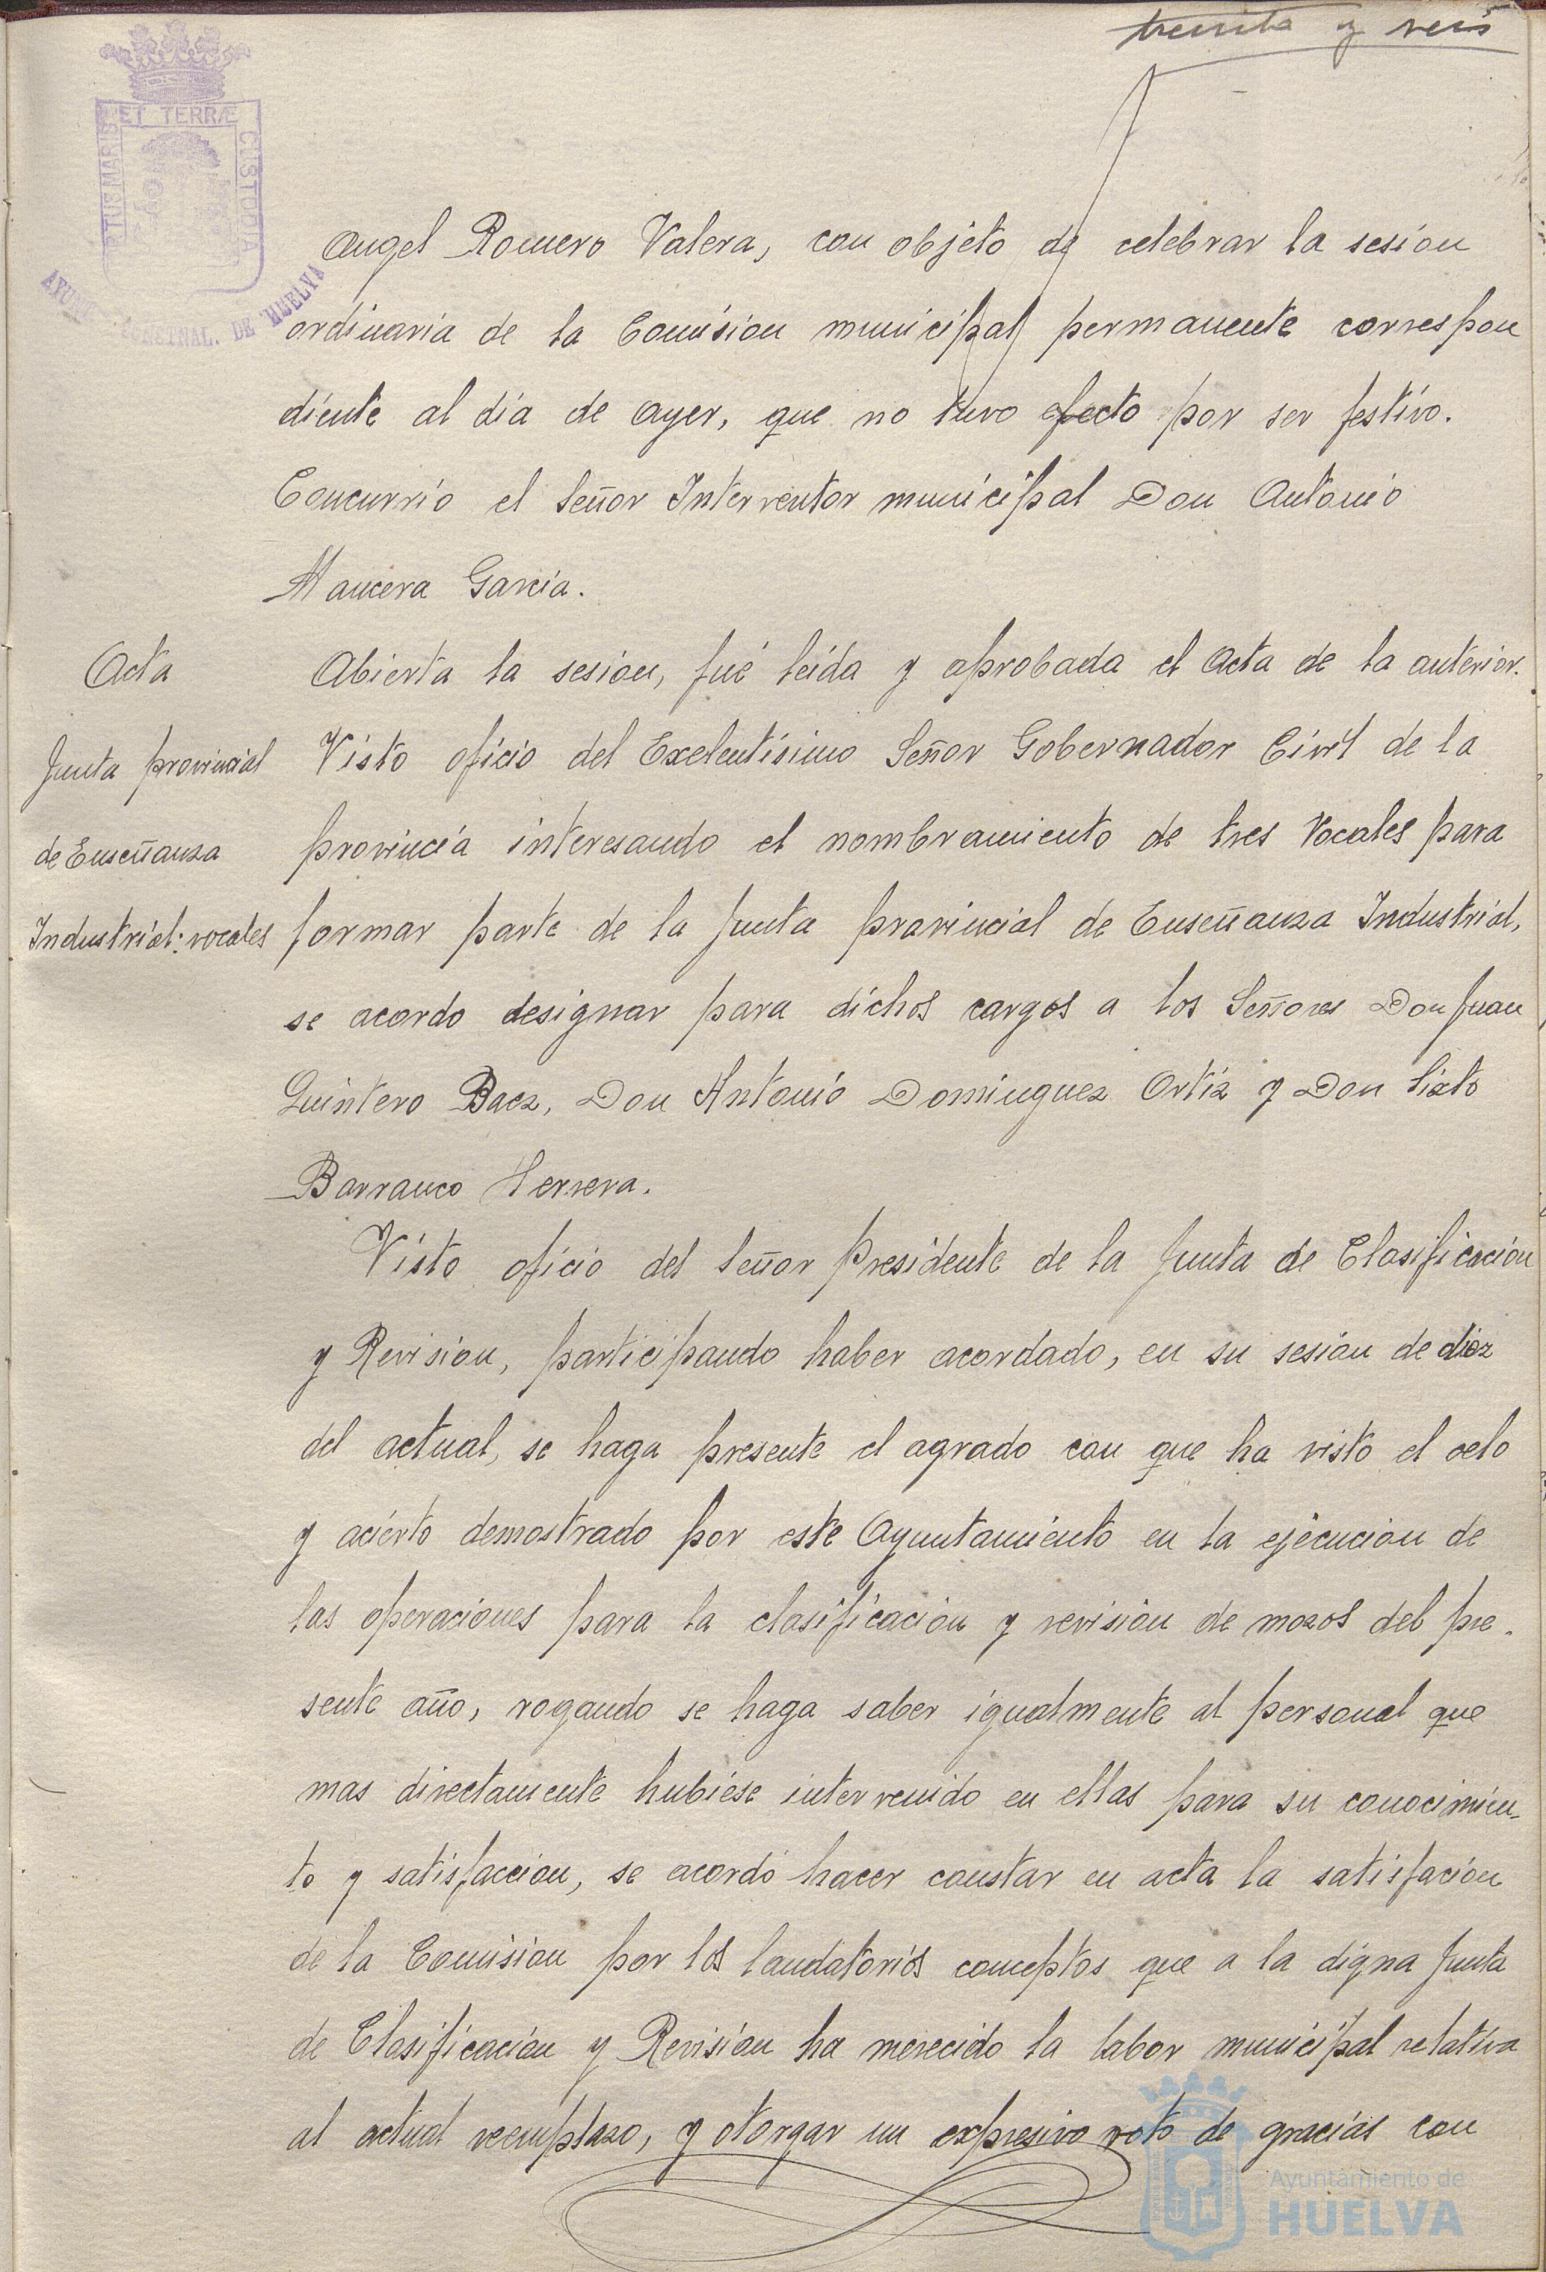 treinta y seis
ET TERRÆ
CUSTODIA
Angel Romero Valera, con objeto de celebrar la sesion
ordinaria de la Comision municipal permanente correspon
diente al día de ayer, que no tuvo efecto por ser festivo.
Concurrió el Señor Interventor municipal Don Antonio
Mancera García.
Acta
Abierta la sesion, fué leída y aprobada el acta de la anterior.
Junta provincial
de Enseñanza
Industrial: vocales
Visto oficio del Exelentísimo Señor Gobernador Civil de la
provincia interesando el nombramiento de tres Vocales para
formar parte de la Junta provincial de Enseñanza Industrial,
se acordo designar para dichos cargos a los Señores Don Juan
Quintero Baez, Don Antonio Dominguez Ortiz y Don Sixto
Barranco Herrera.
Visto oficio del Señor Presidente de la Junta de Clasificación
y Revision, participando haber acordado, en su sesion de diez
del actual, se haga presente el agrado con que ha visto el celo
y acierto demostrado por este Ayuntamiento en la ejecucion de
las operaciones para la clasificación y revision de mozos del pre-
sente año, rogando se haga saber igualmente al personal que
mas directamente hubiése intervenido en ellas para su conocimien-
to y satisfaccion, se acordó hacer constar en acta la satisfación
de la Comision por los laudatorios conceptos que a la digna Junta
de Clasificación y Revision ha merecido la labor municipal relativa
al actual reemplazo, y otorgar un expresivo voto de gracias con
Ayuntamiento de
HUELVA